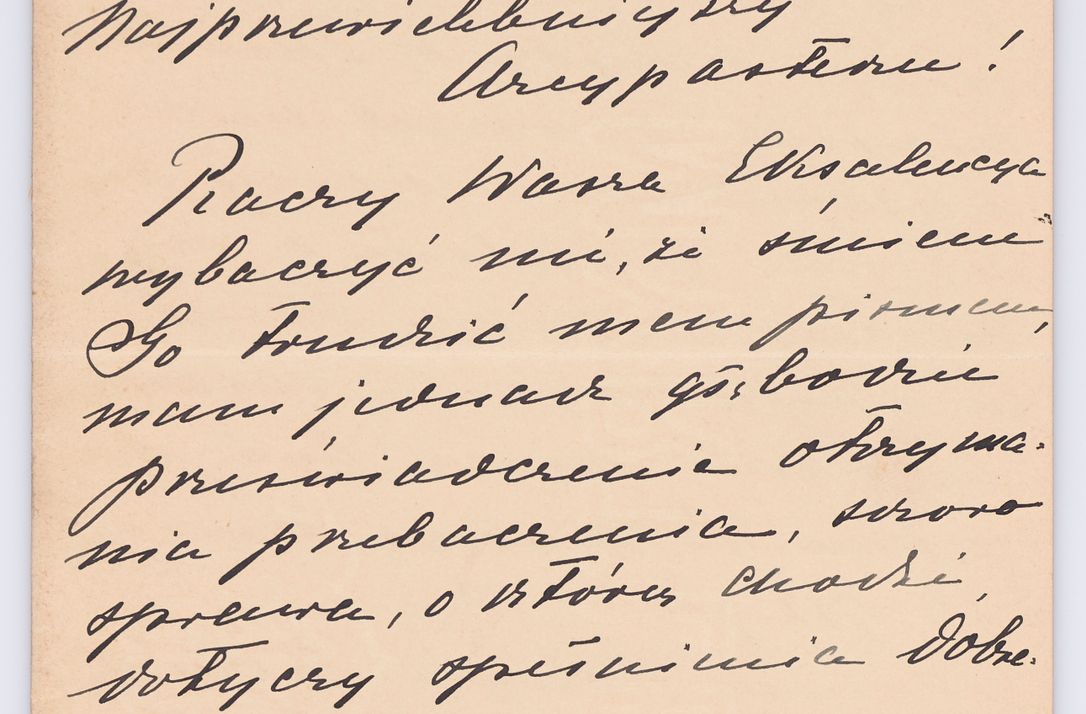 Najprzewielebniejszy
Arcypasterzu!
Raczy Wasza Ekscelencya
wybaczyć mi, że śmiem
Go trudzić mem pismem,
mam jednak głębokie
przeświadczenie otrzyma-
nia przebaczenia, skoro
sprawa, o którą chodzi,
dotyczy spełnienia dobre-